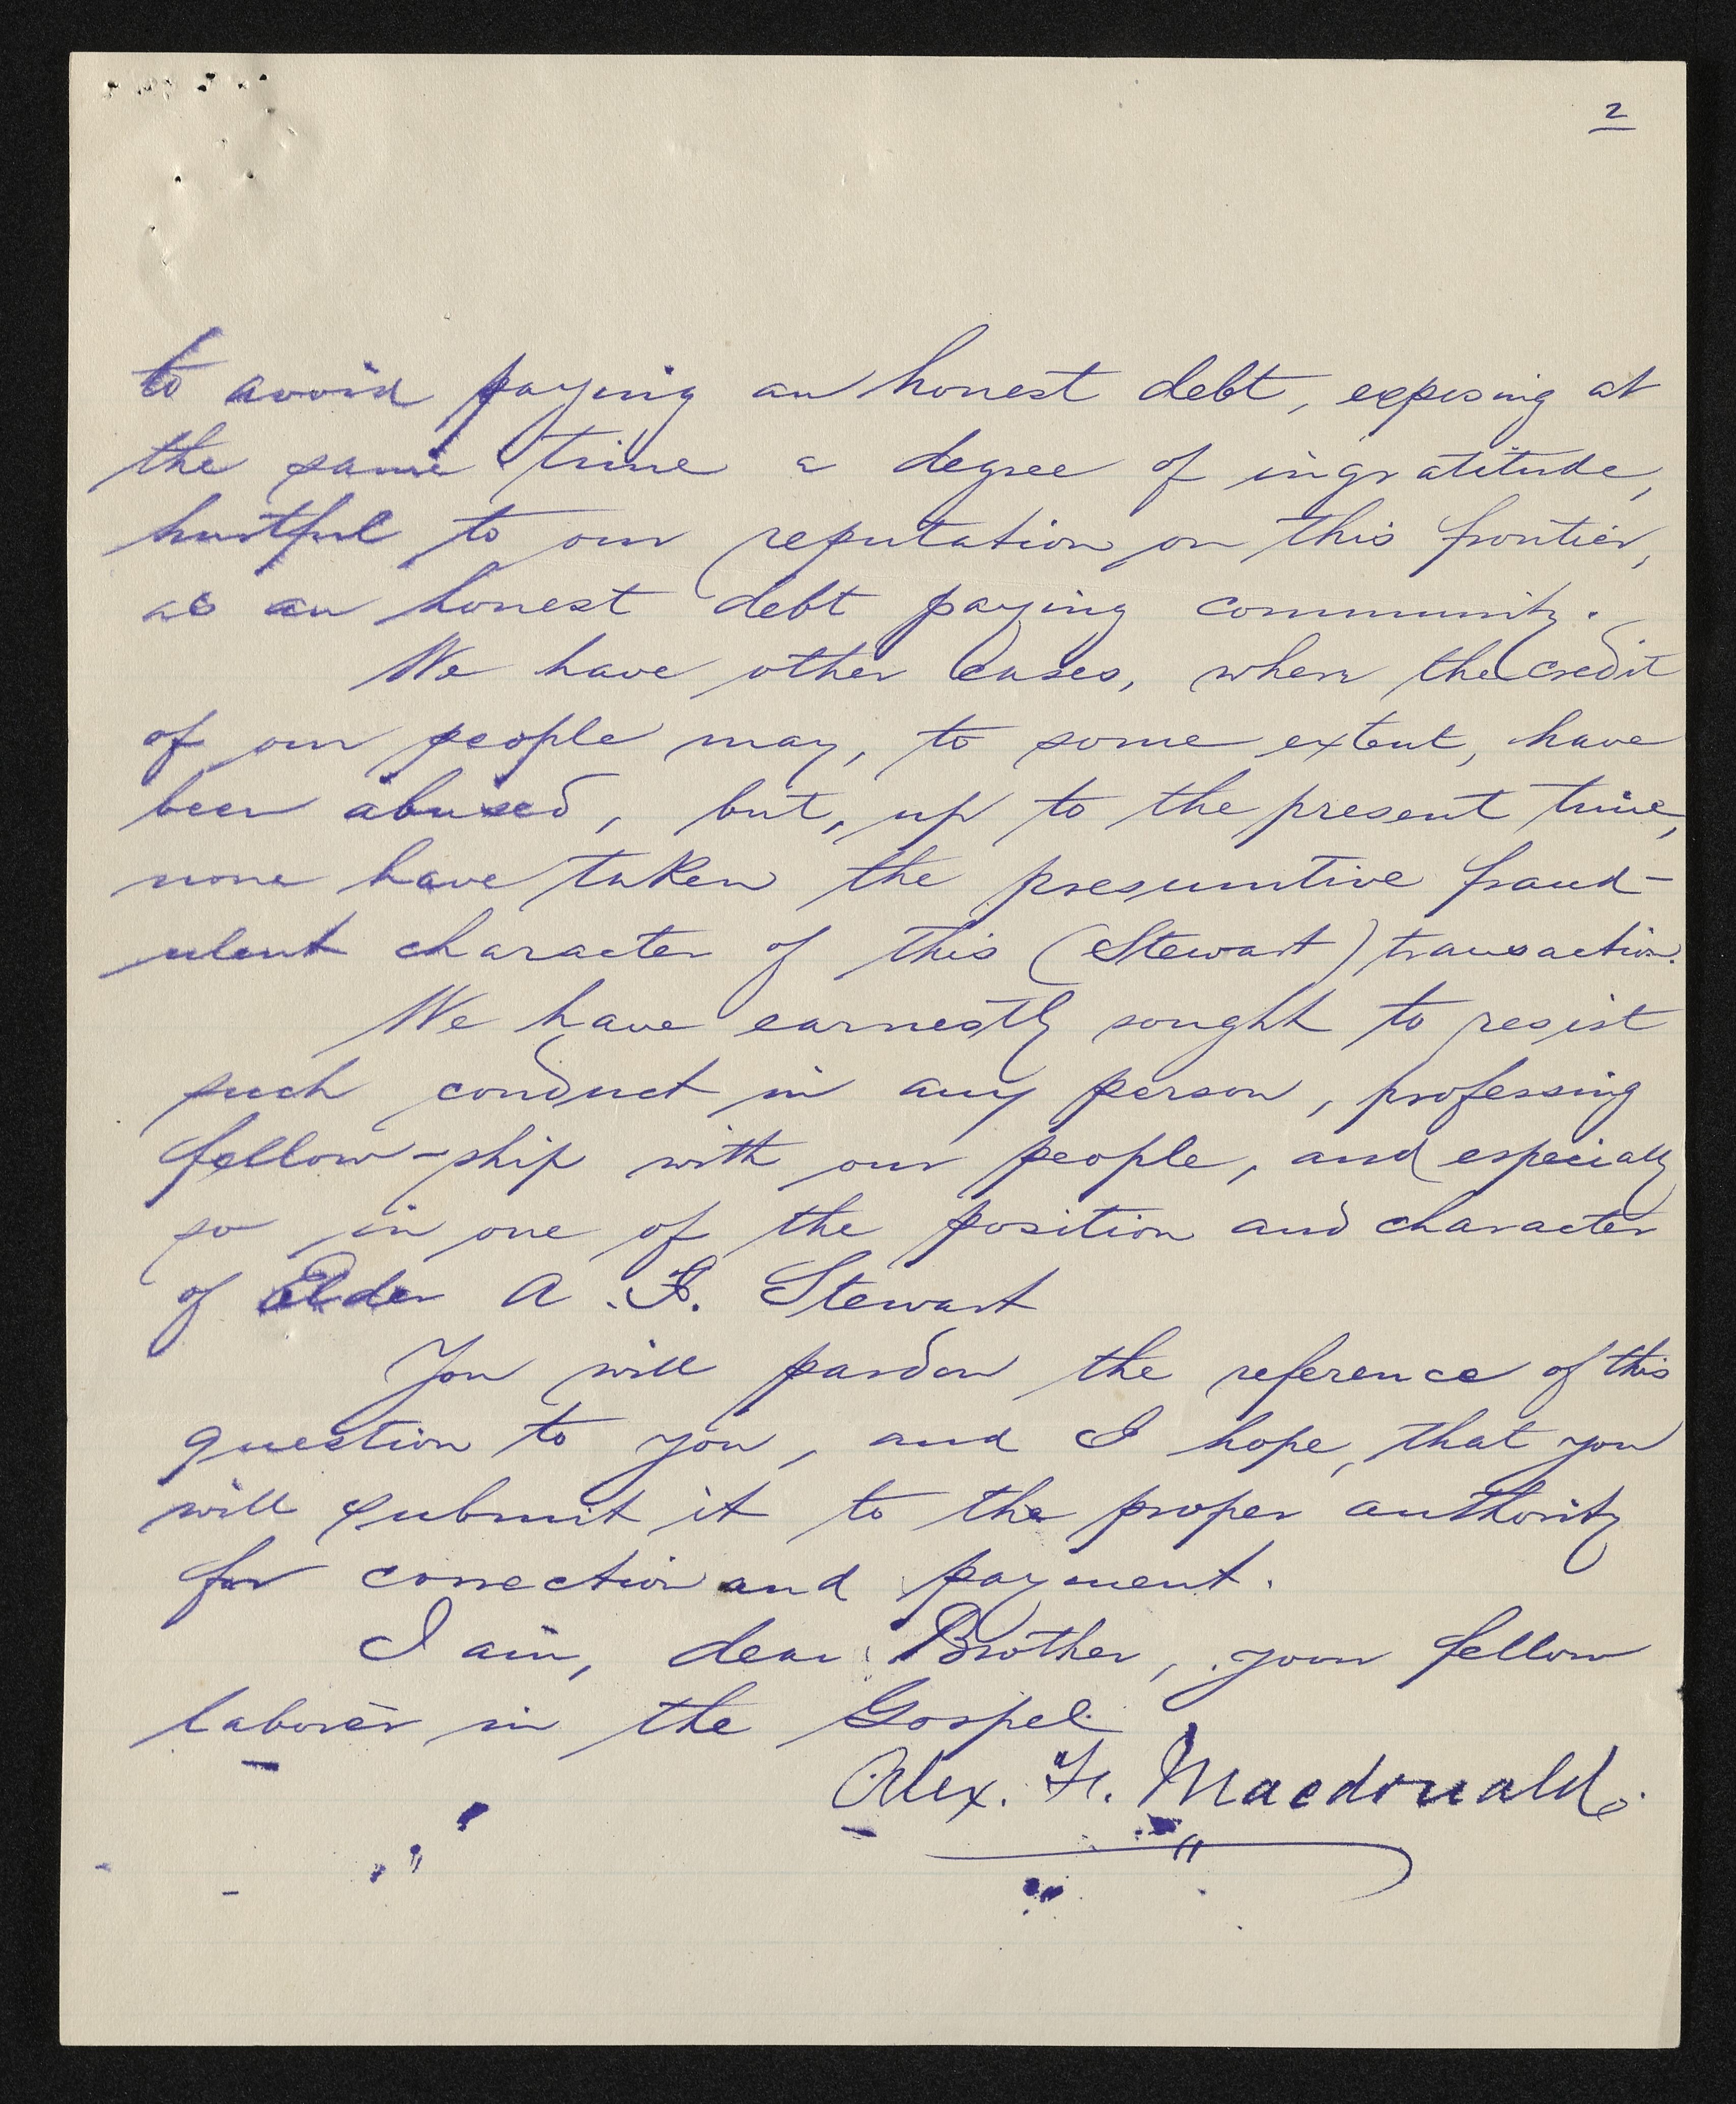 2
to avoid paying an honest debt, exposing at
the same time a degree of ingratitude,
hurtful to our reputation on this frontier,
as an honest debt paying community.
We have other cases, where the credit
of our people may, to some extent, have
been abused, but, up to the present time,
none have taken the presumtive fraud-
ulent character of this (Stewart) transaction.
We have earnestly sought to resist
such conduct in any person, professing
fellow-ship with our people, and especially
so in one of the position and character
of Elder A. F. Stewart
You will pardon the reference of this
question to you, and I hope, that you
will submit it to the proper authority
for correction and payment.
I am, dear Brother, your fellow
laborer in the Gospel
Alex. F. Macdonald.